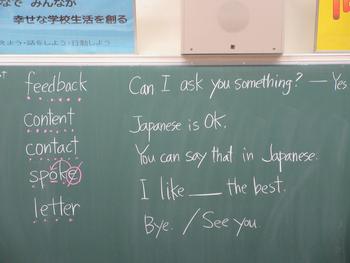 なで みんなが
幸せな学校生活を創る
feedback
content
contact
spoke
letter
Can I ask you something? — Yes
Japanese is OK.
You can say that in Japanese.
I like ___ the best.
Bye. / See you.